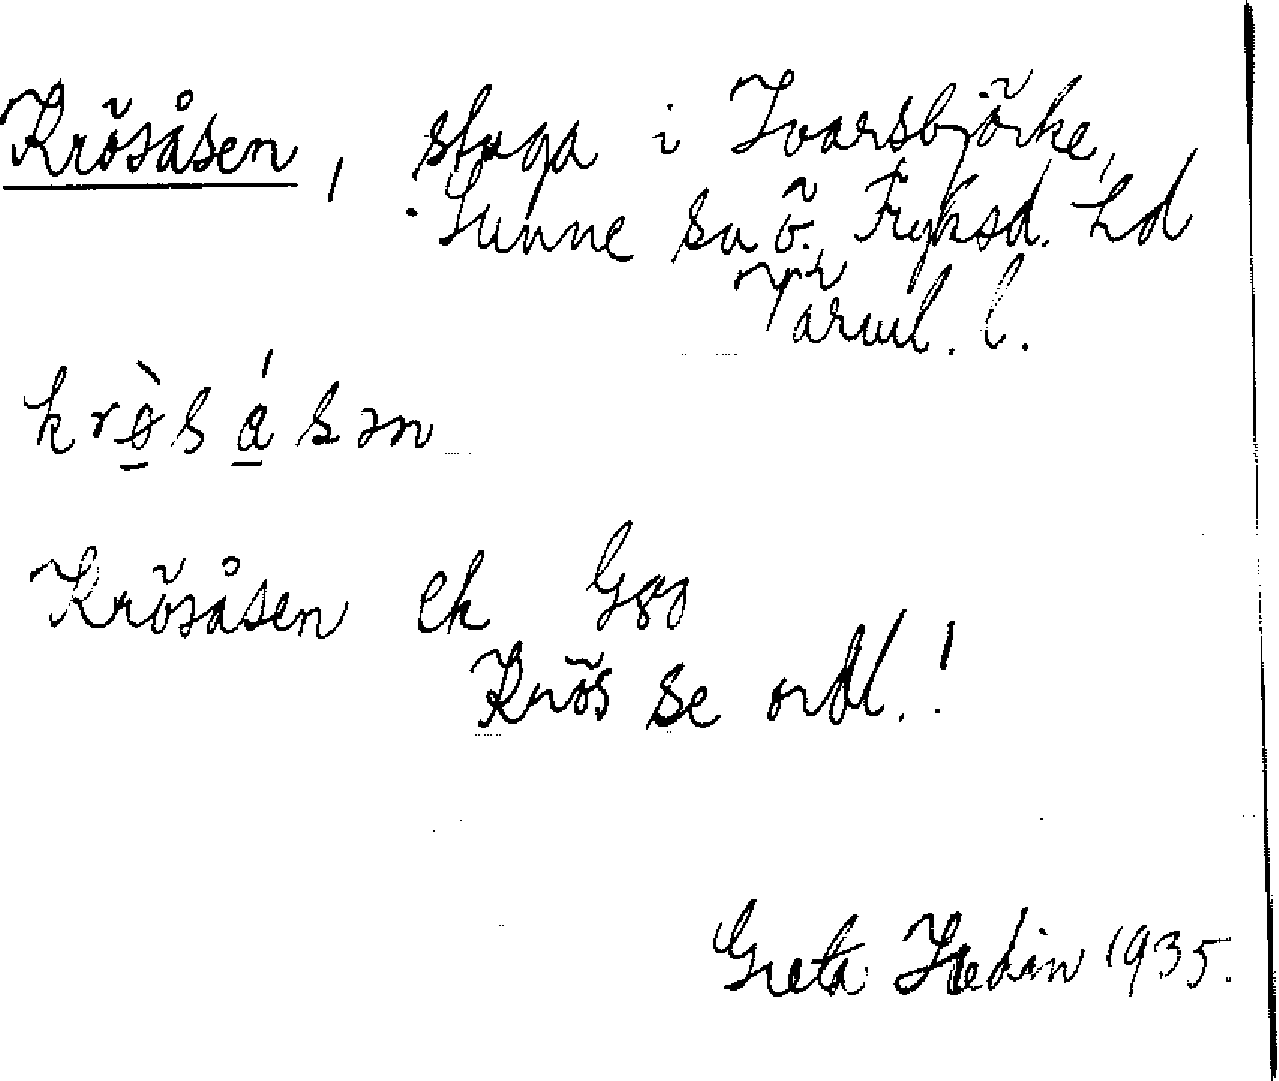 Krösåsen, stuga i Ivarsbjörke,
Sunne sn ö. Fryksd. hd
Värml. l.
krø̀sásən
Krösåsen ek G80
Krös se ordl.!
Greta Hedin 1935.